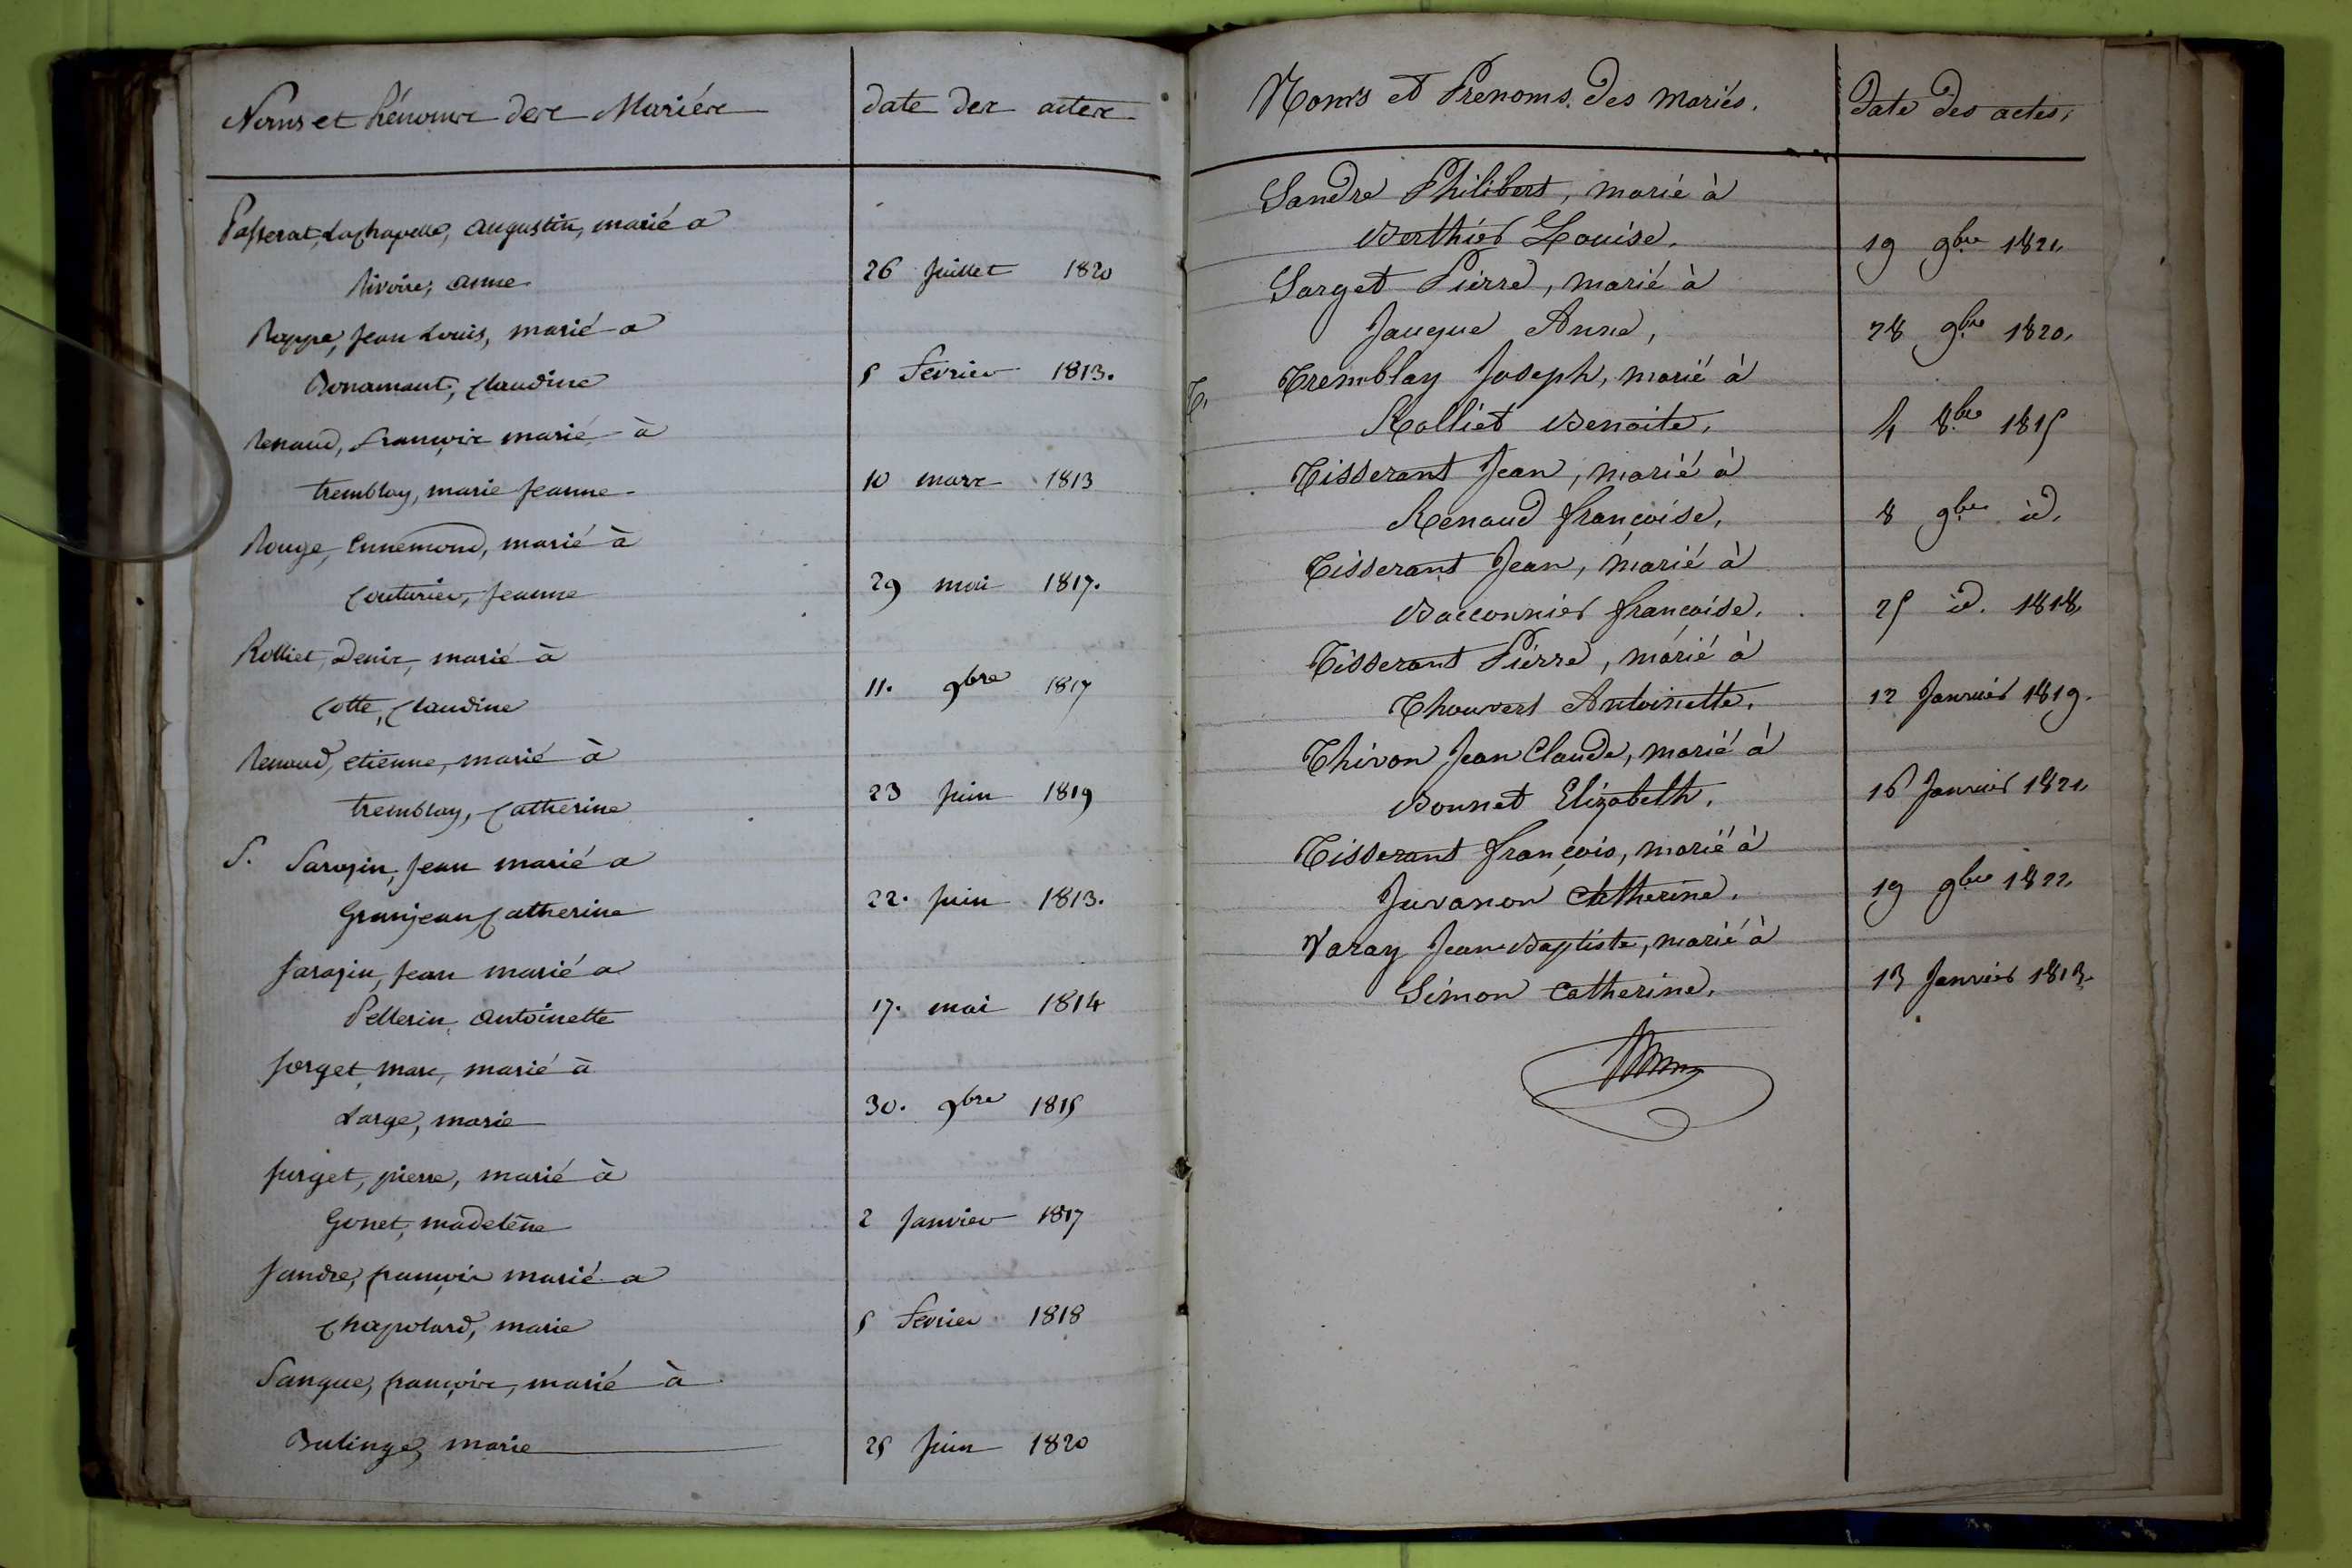 Noms et Prénoms des Mariés
date des actes
Passerat, Lachapelle, augustin, marié a
Rivoire, anne
26 Juillet 1820
Roppe, Jean Louis, marié a
Bonamant, Claudine
5 Fevrier 1813.
Renaud, François marié à
tremblay, marie Jeanne
10 mars 1813
Rouge, Ennemond, marié à
Couturier, Jeanne
29 mai 1817.
Rolliet, Denis, marié à
Cotte, Claudine
11. 9bre 1817
Renaud, etienne, marié à
tremblay, Catherine
23 Juin 1819
S. Sarazin, Jean marié a
Granjean Catherine
22. Juin 1813.
Sarazin, Jean marié a
Pellerin, antoinette
17. mai 1814
Sorget, marc, marié à
Large, marie
30. 9bre 1815
Surget, pierre, marié à
Gonet, madelène
2 Janvier 1817
Sandre, françois marié a
Chapolard, marie
5 Fevrier 1818
Sangue, françois, marié à
Bulinge, marie
25 Juin 1820
Noms et Prenoms des mariés.
Date des actes,
Sandre Philibert, marié à
Berthier Louise.
19 9bre 1821,
Sarget Pierre, marié à
Jauque Anne,
28 9bre 1820,
T, Tremblay Joseph, marié à
Rolliet Benoite,
4 8bre 1815
Tisserant Jean, marié à
Renaud françoise,
8 9bre id,
Tisserant Jean, marié à
Bacconnier francoise,
25 id. 1818,
Tisserant Pierre, marié à
Thouvert Antoinette,
12 Janvier 1819.
Thivon Jean Claude, marié à
Bonnet Elizabeth,
16 Janvier 1821,
Tisserant françois, marié à
Juvanon Catherine,
19 9bre 1822,
Varay Jean Baptiste, marié à
Simon Catherine,
13 Janvier 1813.